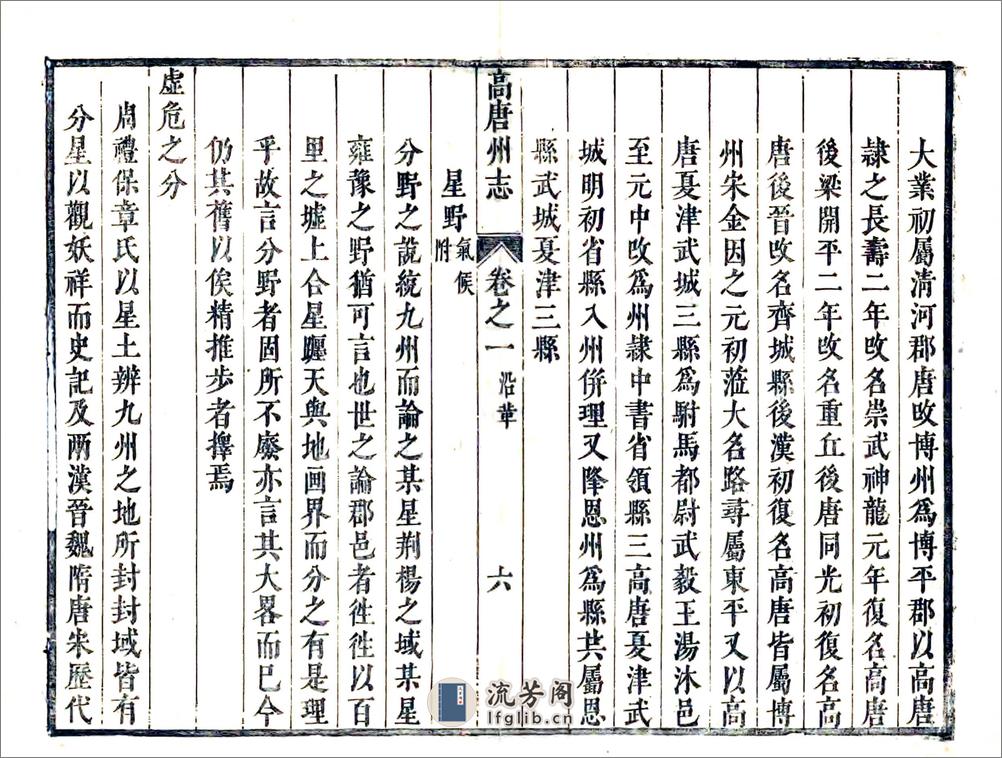 大業初屬清河郡唐改博州爲博平郡以高唐
隷之長壽二年改名崇武神龍元年復名高唐
後梁開平二年改名重丘後唐同光初復名高
唐後晉改名齊城縣後漢初復名高唐皆屬博
州宋金因之元初蒞大名路尋屬東平又以高
唐夏津武城三縣爲駙馬都尉武毅王湯沐邑
至元中改爲州隷中書省領縣三高唐夏津武
城明初省縣入州併理又降恩州爲縣共屬恩
縣武城夏津三縣
高唐州志 卷之一 沿革 六
星野 氣候附
分野之說統九州而論之某星荆楊之域某星
雍豫之野猶可言也世之論郡邑者徃徃以百
里之墟上合星躔天與地画界而分之有是理
乎故言分野者固所不廢亦言其大畧而已今
仍其舊以俟精推步者擇焉
虛危之分
周禮保章氏以星土辨九州之地所封封域皆有
分星以觀妖祥而史記及兩漢晉魏隋唐宋歷代
流芳阁
lfglib.cn